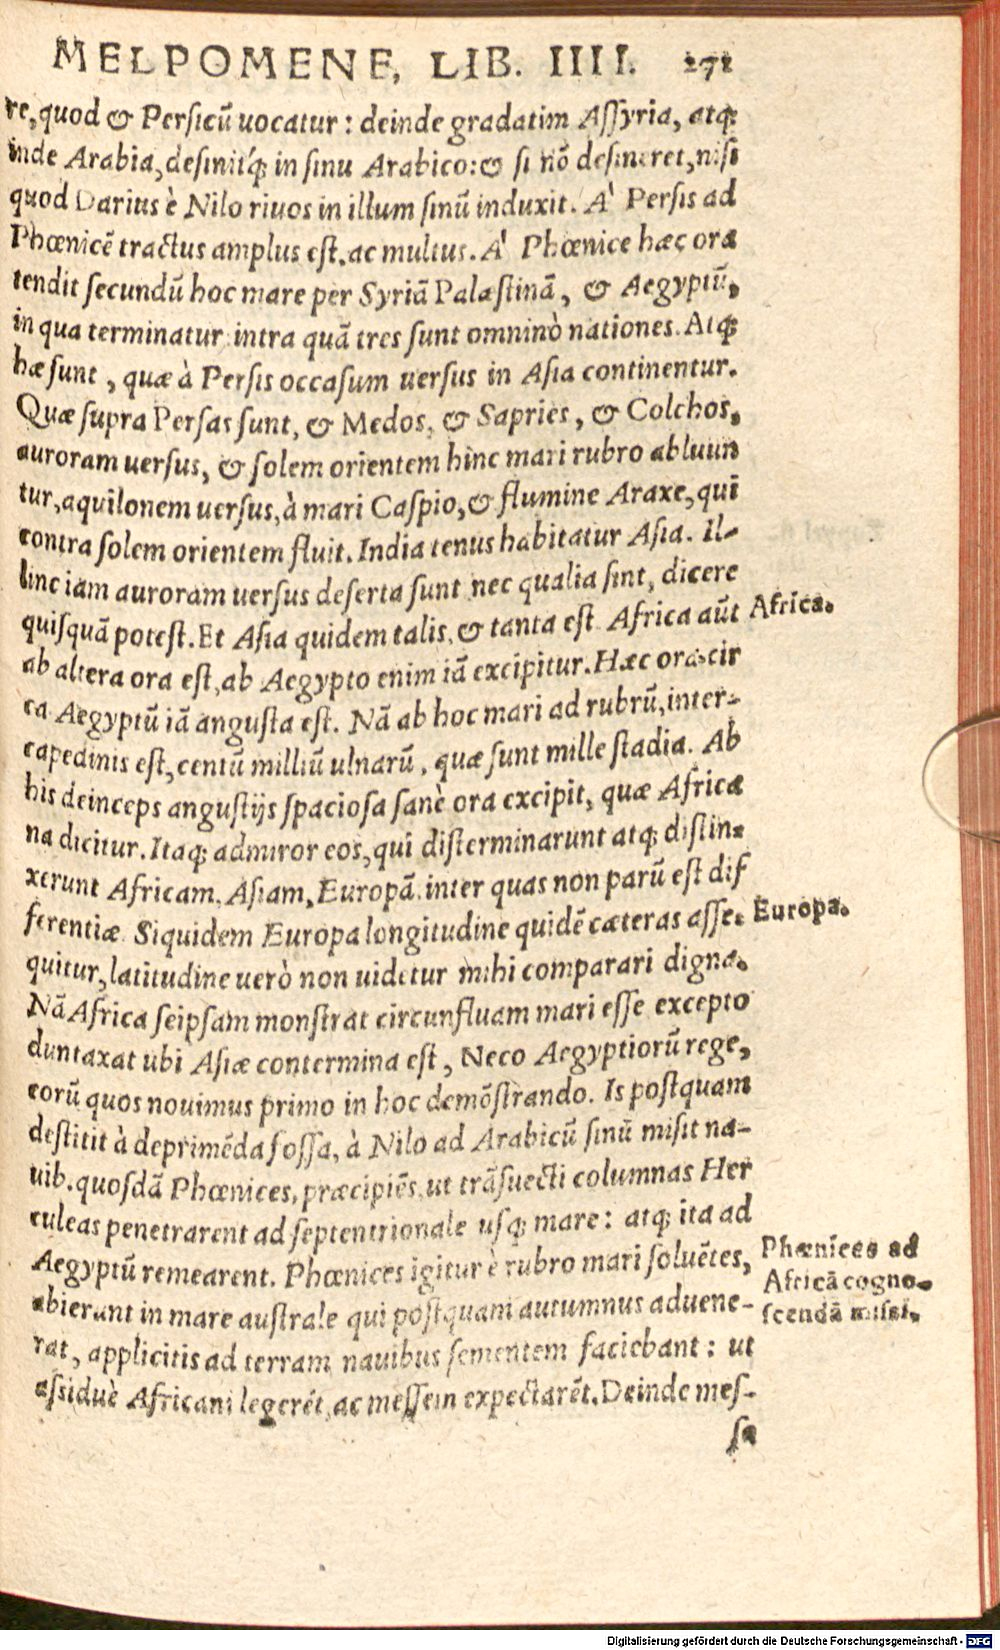 MELPOMENE, LIB. IIII. 271
re, quod & Persicū uocatur: deinde gradatim Assyria, atq;
inde Arabia, desinitq́; in sinu Arabico: & si nō desineret, nisi
quod Darius è Nilo riuos in illum sinū induxit. A' Persis ad
Phœnicē tractus amplus est, ac multus. A' Phœnice hæc ora
tendit secundū hoc mare per Syriā Palæstinā, & Aegyptū,
in qua terminatur: intra quā tres sunt omninò nationes. Atq;
hæ sunt, quæ à Persis occasum uersus in Asia continentur.
Quæ supra Persas sunt, & Medos, & Sapries, & Colchos,
auroram uersus, & solem orientem hinc mari rubro abluun
tur, aquilonem uersus, à mari Caspio, & flumine Araxe, qui
contra solem orientem fluit. India tenus habitatur Asia. Il-
linc iam auroram uersus deserta sunt nec qualia sint, dicere
quisquā potest. Et Asia quidem talis, & tanta est. Africa aūt
Africa.
ab altera ora est, ab Aegypto enim iā excipitur. Hæc ora cir
ca Aegyptū iā angusta est. Nā ab hoc mari ad rubrū, inter-
capedinis est, centū milliū ulnarū, quæ sunt mille stadia. Ab
his deinceps angustijs spaciosa sanè ora excipit, quæ Africa
na dicitur. Itaq; admiror eos, qui disterminarunt atq; distin-
xerunt Africam, Asiam, Europā, inter quas non parū est dif
ferentiæ. Siquidem Europa longitudine quidē cæteras asse-
Europa.
quitur, latitudine uerò non uidetur mihi comparari digna.
Nā Africa seipsam monstrat circunfluam mari esse excepto
duntaxat ubi Asiæ contermina est, Neco Aegyptiorū rege,
eorū quos nouimus primo in hoc demōstrando. Is postquam
destitit à deprimēda fossa, à Nilo ad Arabicū sinū misit na-
uib. quosdā Phœnices, præcipiēs, ut trāsuecti columnas Her
culeas penetrarent ad septentrionale usq; mare: atq; ita ad
Aegyptū remearent. Phœnices igitur è rubro mari soluētes,
abierant in mare australe qui postquam autumnus aduene-
rat, applicitis ad terram nauibus sementem faciebant: ut
assiduè Africam legerét, ac messem expectarēt. Deinde mes-
sa
Phœnices ad
Africā cogno-
scendā missi.
Digitalisierung gefördert durch die Deutsche Forschungsgemeinschaft - DFG